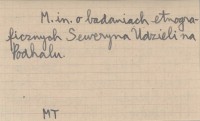 M. in. o badaniach etnogra-
ficznych Seweryna Udzieli na
Podhalu.
MT